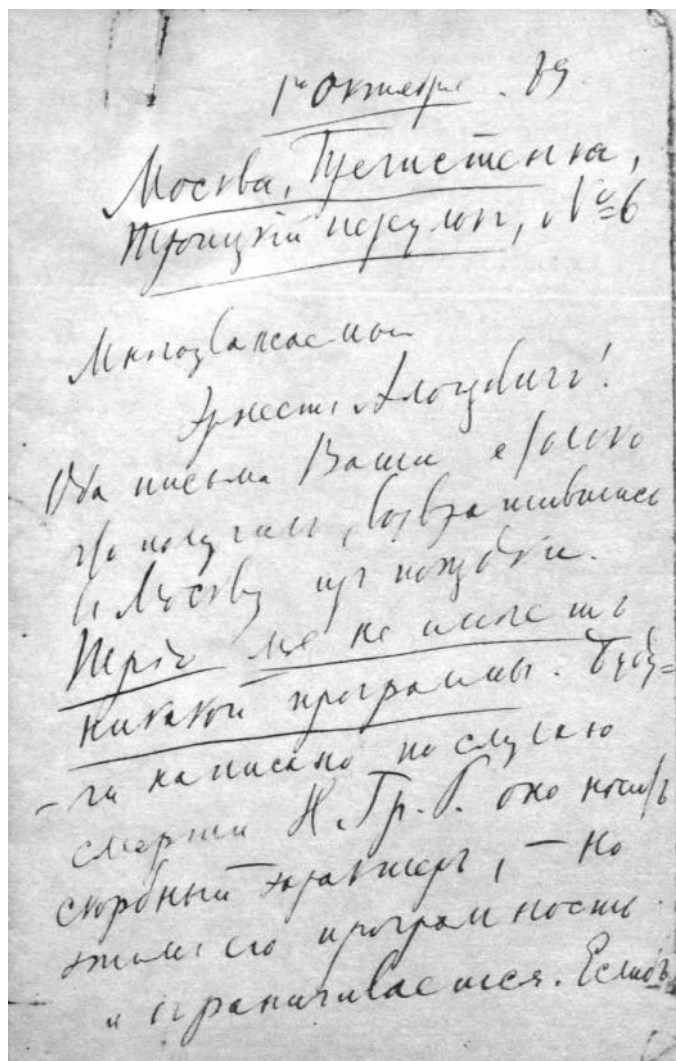 1го Октября. 89.
Москва, Пречистенка,
Троицкiй переулокъ, №6
Многоуважаемый
Эрнестъ Алоизовичъ!
Оба письма Ваши я только
что получилъ, возвратившись
въ Москву изъ поѣздки.
Трiо мое не имѣетъ
никакой программы. Буду=
-чи написано по случаю
смерти Н. Гр. Р. оно носитъ
скорбный характеръ, – но
этимъ его програмность
и ограничивается. Еслибъ